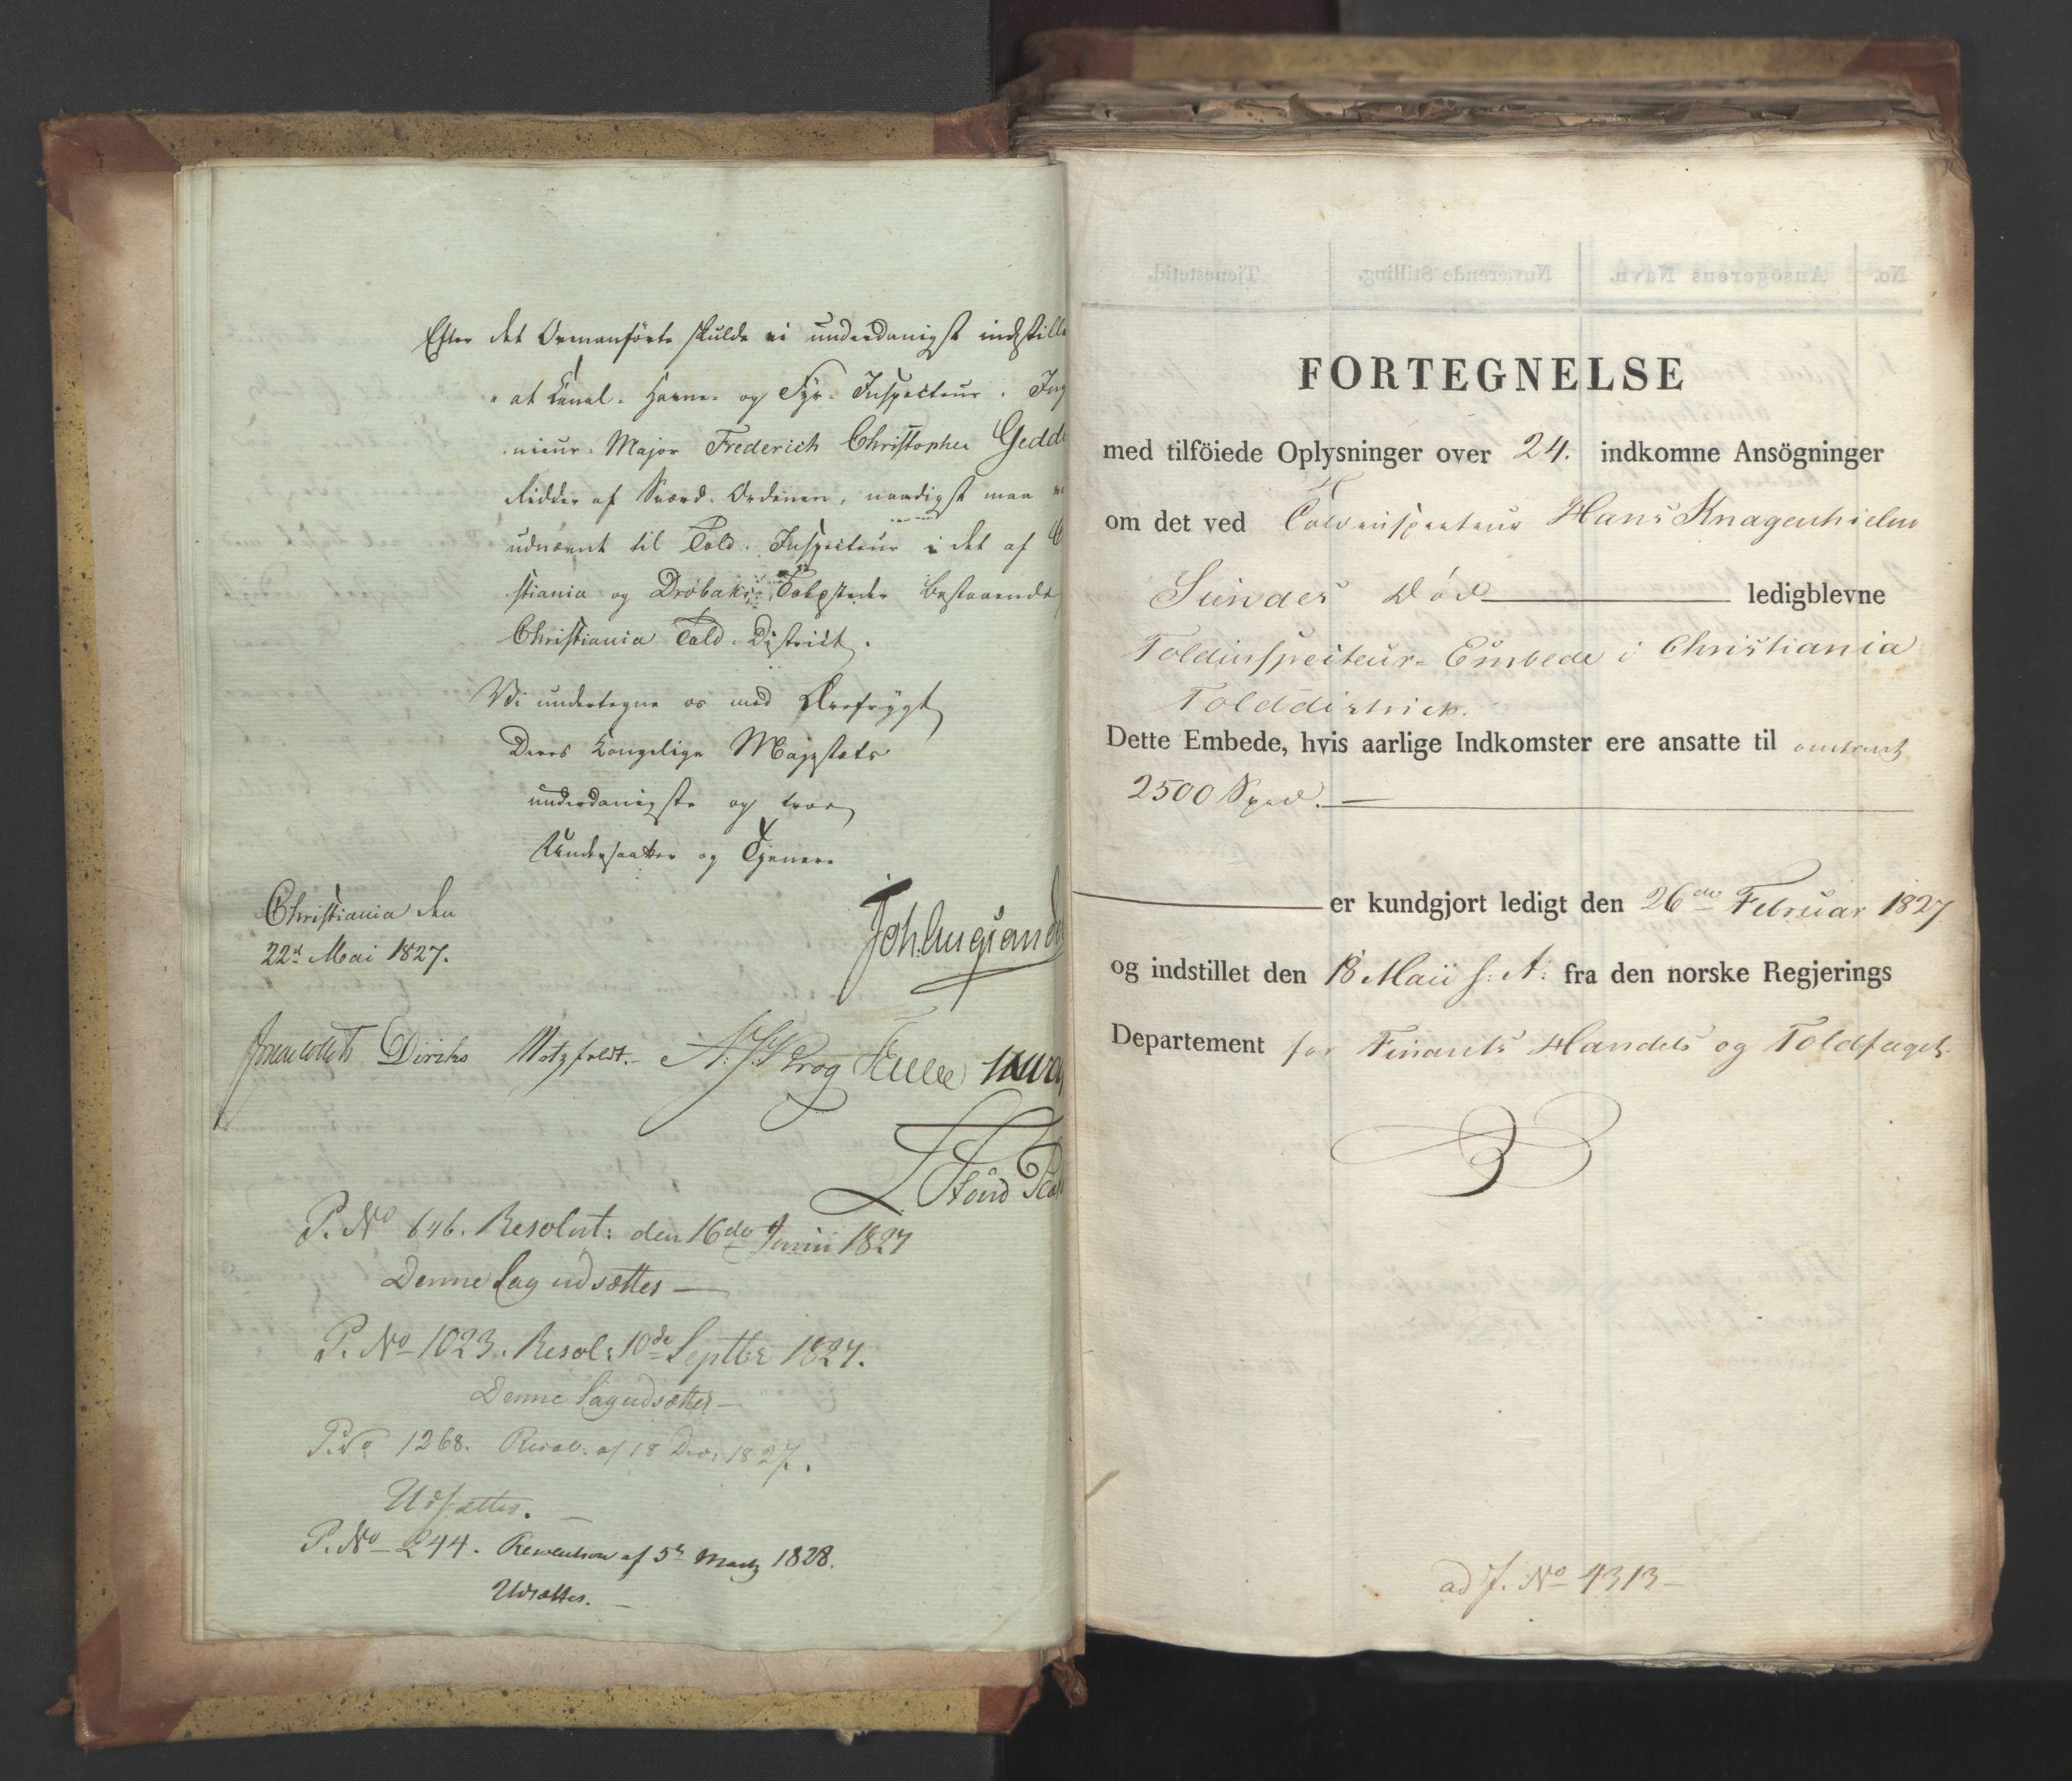 Efter det Ovenanførte skulde vi underdanigst indstille
"at Canal- Havne- og Fyr-Inspecteur, Ing
nieur-Major Frederich Christopher Gedde
Ridder af Sværd-Ordenen, naadigst maa
udnævnt til Told-Inspecteur i det af C
stiania og Drøbaks Toldsteder bestaaende
Christiania Told-District.
Vi undertegne os med Ærefrygt
Deres Kongelige Majestæts
underdanigste og troe
Undersaatter og Tjenere
Christiania den
22d Mai 1827.
Joh. Aug. Sand
Jonas Collett Diriks Motzfeldt. Krog
P. No 646. Resolut: den 16de Junii 1827
Denne Sag udsættes —
P. No 1023. Resol: 10de Septbr 1827.
Denne Sag udsættes —
P. No 1268. Resol. af 18 Dec: 1827.
Udsættes. —
P. No 244. Resolution af 5te Martz 1828.
Udsættes. —
No. Ansögerens Navn. Nuværende Stilling. Tjenestetid.
FORTEGNELSE
med tilföiede Oplysninger over 24. indkomne Ansögninger
om det ved Toldinspecteur Hans Knagenhielm
Sundes Død ledigblevne
Toldinspecteur-Embede i Christiania
Tolddistrict.
Dette Embede, hvis aarlige Indkomster ere ansatte til omtrent
2500 Spd. —
er kundgjort ledigt den 26de Februar 1827
og indstillet den 18 Maii s: A: fra den norske Regjerings
Departement for Finants Handels og Toldfaget.
ad J. No 4313 —